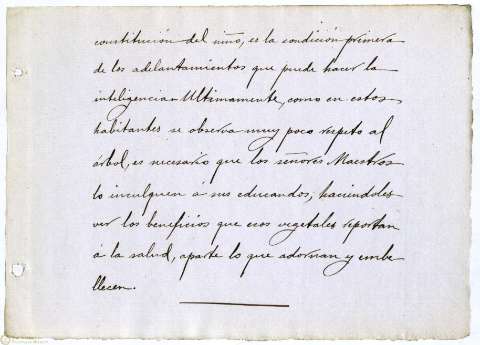 constitución del niño, es la condición primera
de los adelantamientos que puede hacer la
inteligencia. Ultimamente, como en estos
habitantes se observa muy poco respeto al
árbol, es necesario que los señores Maestros
lo inculquen á sus educandos, haciendoles
ver los beneficios que esos vegetales reportan
á la salud, aparte lo que adornan y embe
llecen.